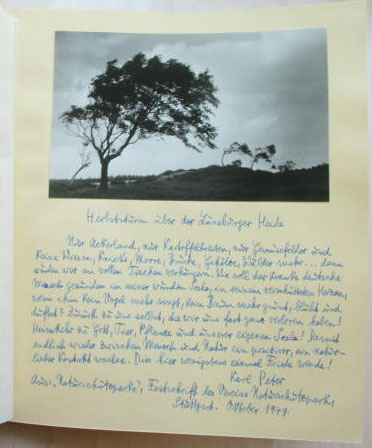 Herbststurm über der Lüneburger Heide
Nur Ackerland, nur Kartoffelbreiten, nur Gemüsefelder und
keine Wiesen, Moore, Wälder mehr ... dann
würden wir an vollen Tischen verhungern. Wie soll der kranke deutsche
Mensch gesunden an seiner wunden Seele, an seinem Herzen,
wenn ihm kein Vogel mehr singt, kein Baum mehr grünt, blüht und
duftet? Zurück zu uns selbst, die wir uns fast ganz verloren haben!
Heimkehr zu Gott, Tier, Pflanze und unserer eigenen Seele! Damit
endlich wieder zwischen Mensch und Natur ein ein
Kontakt wachse. Dass hier wenigstens einmal Friede werde!
Karl Peter
Aus: "Naturschutzparke", Festschrift des Vereins Naturschutzpark,
Stuttgart. Oktober 1949.